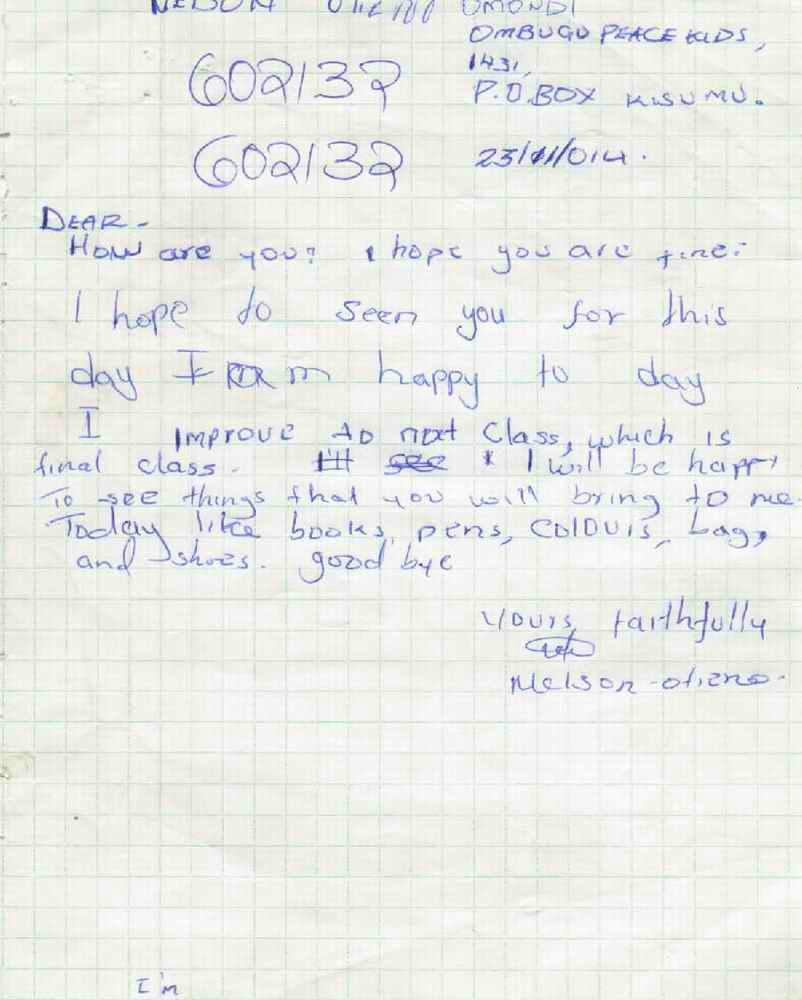 OMONDI
OMBUGU PEACE KIDS,
1431,
P.O.BOX KISUMU.
602132
602132
23/11/014.
DEAR-
How are you? I hope you are fine.
I hope to seen you for this
day I m happy to day
I improve to next class, which is
final class. see I will be happy
To see things that you will bring to me.
Today like books, pens, colours, bag,
and shoes. good bye
Yours faithfully
Nelson-otieno.
I'm